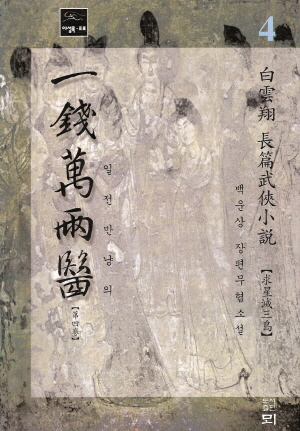 4
白雲翔 長篇武俠小說
【求星滅三爲】
백운상 장편무협소설
一錢萬兩醫
【第四卷】
일전만냥의
도서출판
뫼